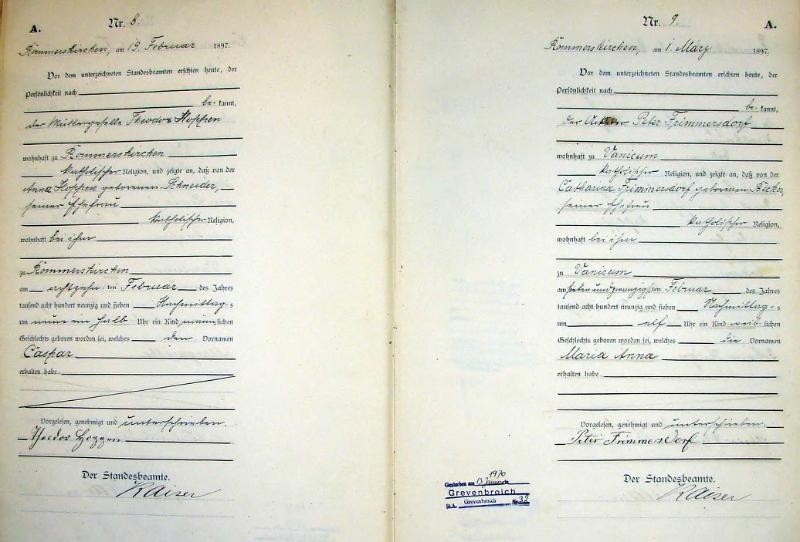 A.
Nr. 8.
Rommerskirchen, am 19. Februar 1897.
Vor dem unterzeichneten Standesbeamten erschien heute, der
Persönlichkeit nach
be- kannt,
der Theodor Hoppen
wohnhaft zu Rommerskirchen
katholischer Religion, und zeigte an, daß von der
Anna Hoppen geborenen Schneider,
seiner Ehefrau
katholischer Religion,
wohnhaft bei ihm
zu Rommerskirchen
am achtzehn ten Februar des Jahres
tausend acht hundert neunzig und sieben Nachmittag s
um neun ein halb Uhr ein Kind männlichen
Geschlechts geboren worden sei, welches den Vornamen
Caspar
erhalten habe
Vorgelesen, genehmigt und unterschrieben.
Theodor Hoppen
Der Standesbeamte.
Kaiser
Nr. 9.
A.
Rommerskirchen, am 1. März 1897.
Vor dem unterzeichneten Standesbeamten erschien heute, der
Persönlichkeit nach
be- kannt,
der Peter Frimmersdorf
wohnhaft zu Vanicum
katholischer Religion, und zeigte an, daß von der
Catharina Frimmersdorf geborenen
seiner Ehefrau
katholischer Religion,
wohnhaft bei ihm
zu Vanicum
am sieben und zwanzigsten Februar des Jahres
tausend acht hundert neunzig und sieben Nachmittag s
um elf Uhr ein Kind weiblichen
Geschlechts geboren worden sei, welches die Vornamen
Maria Anna
erhalten habe
Vorgelesen, genehmigt und unterschrieben.
Peter Frimmersdorf
Der Standesbeamte.
Kaiser
1970
Gestorben am 13. Januar
Grevenbroich
Grevenbroich
St.A. Nr. 32